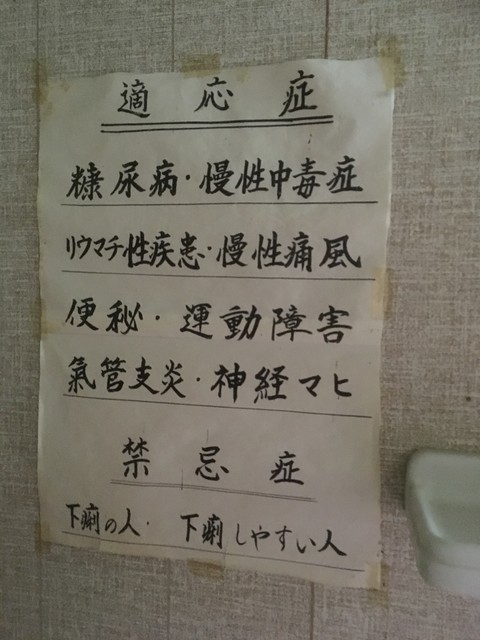 適応症
糠尿病・慢性中毒症
リウマチ性疾患・慢性痛風
便秘・運動障害
氣管支炎・神経マヒ
禁忌症
下痢の人・ 下痢しやすい人